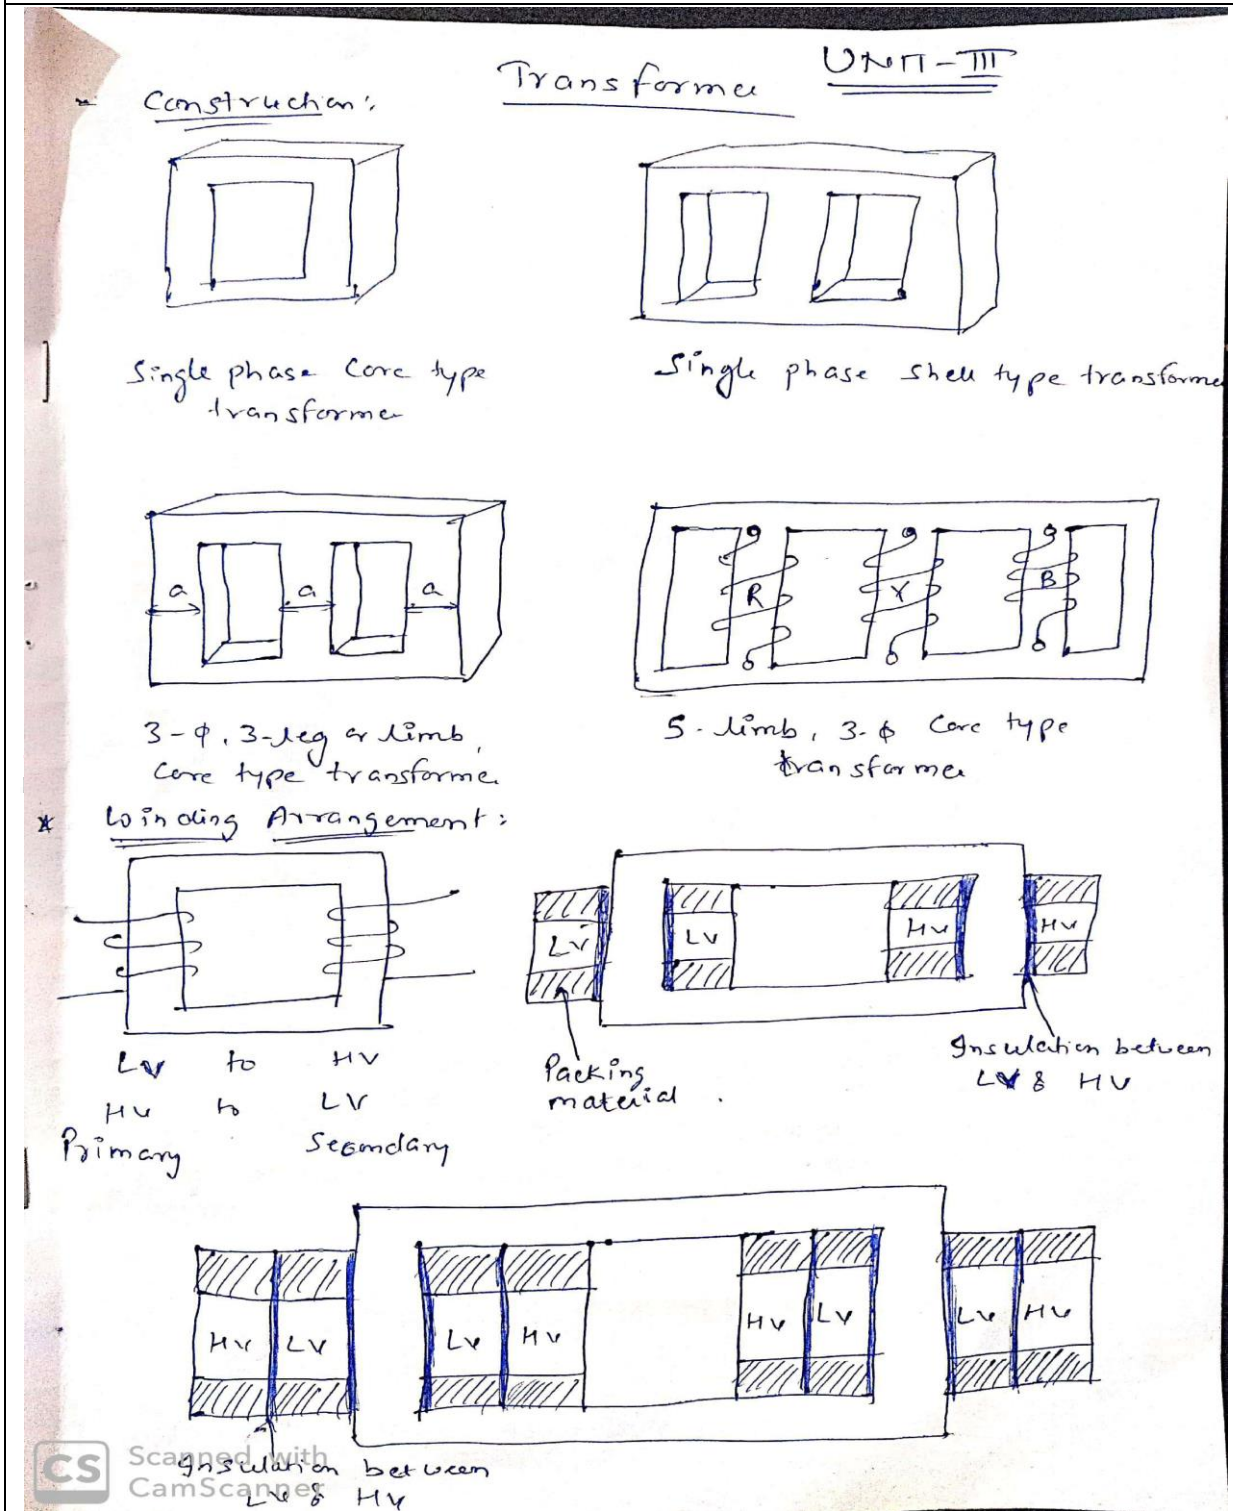 UNIT-III
Transformer
Construction:
Single phase Core type
transformer
Single phase shell type transformer
a
a
a
R
Y
B
3-φ, 3-leg or limb,
Core type transformer
5-limb, 3-φ Core type
transformer
* Winding Arrangement:
LV to HV
HV to LV
Primary Secondary
LV
LV
HV
HV
Packing
material.
Insulation between
LV & HV
HV
LV
LV
HV
HV
LV
LV
HV
Insulation between
LV & HV
CS
Scanned with
CamScanner